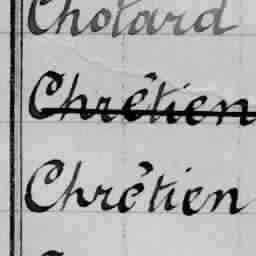 Cholard
Chrêtien
Chrêtien